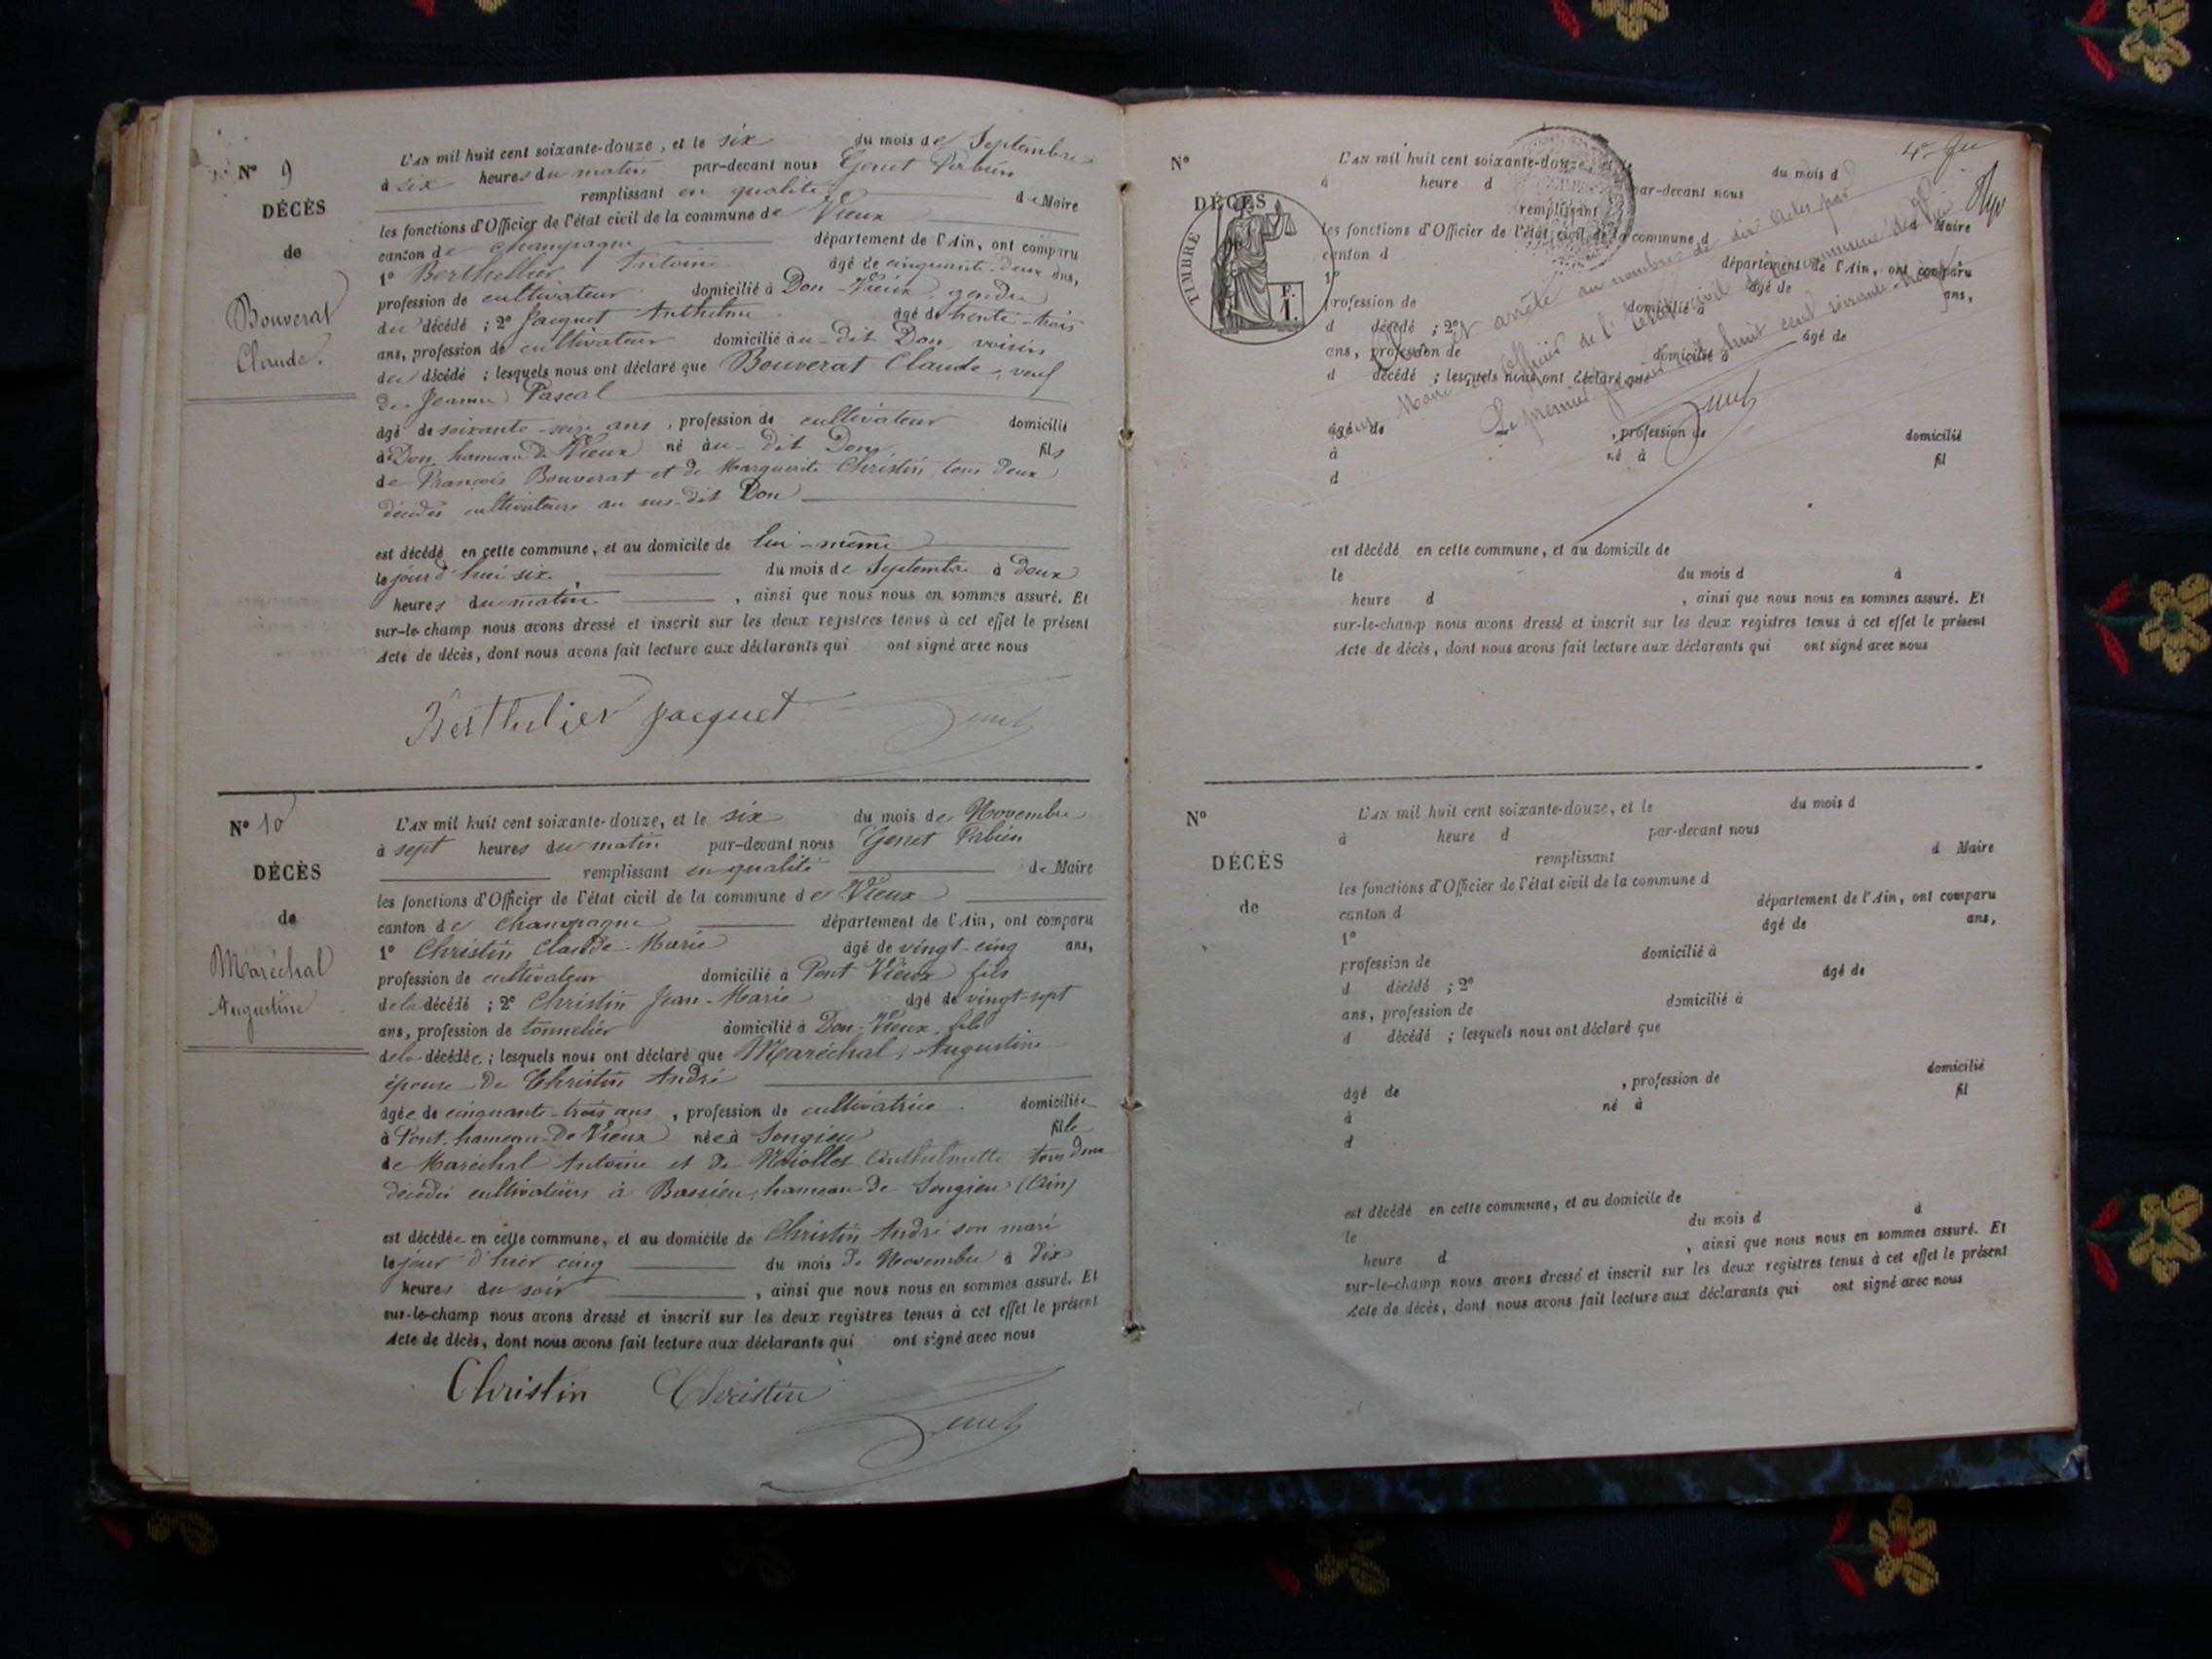 N° 9
DÉCÈS
de
Bouverat
Claude.
L'AN mil huit cent soixante-douze, et le six du mois de Septembre
à six heures du matin par-devant nous Genet Fabien
remplissant en qualité de Maire
les fonctions d'Officier de l'état civil de la commune de Vieux
canton de Champagne département de l'Ain, ont comparu
1° Berthelier Antoine âgé de cinquante-deux ans,
profession de cultivateur domicilié à Don-Vieux, gendre
du décédé ; 2° Jacquet Anthelme âgé de trente-trois
ans, profession de cultivateur domicilié au-dit Don, voisin
du décédé ; lesquels nous ont déclaré que Bouverat Claude, veuf
de Jeanne Pascal
âgé de soixante-seize ans, profession de cultivateur domicilié
à Don, hameau de Vieux né au-dit Don fils
de François Bouverat et de Marguerite Christin, tous deux
décédés cultivateurs au sus-dit Don
est décédé en cette commune, et au domicile de lui-même
le jour d'hui six du mois de Septembre à deux
heures du matin, ainsi que nous nous en sommes assuré. Et
sur-le-champ nous avons dressé et inscrit sur les deux registres tenus à cet effet le présent
Acte de décès, dont nous avons fait lecture aux déclarants qui ont signé avec nous
Berthelier Jacquet Genet
N° 10
DÉCÈS
de
Maréchal
Augustine
L'AN mil huit cent soixante-douze, et le six du mois de Novembre
à sept heures du matin par-devant nous Genet Fabien
remplissant en qualité de Maire
les fonctions d'Officier de l'état civil de la commune de Vieux
canton de Champagne département de l'Ain, ont comparu
1° Christin Claude-Marie âgé de vingt-cinq ans,
profession de cultivateur domicilié à Pont Vieux fils
de la décédé ; 2° Christin Jean-Marie âgé de vingt-sept
ans, profession de tonnelier domicilié à Don-Vieux, fils
de la décédée ; lesquels nous ont déclaré que Maréchal, Augustine
épouse de Christin André
âgée de cinquante-trois ans, profession de cultivatrice domiciliée
à Pont, hameau de Vieux née à Songieu fille
de Maréchal Antoine et de Anthelmette tous deux
décédés cultivateurs à Bassieu, hameau de Songieu (Ain)
est décédée en cette commune, et au domicile de Christin André son mari
le jour d'hier cinq du mois de Novembre à dix
heures du soir, ainsi que nous nous en sommes assuré. Et
sur-le-champ nous avons dressé et inscrit sur les deux registres tenus à cet effet le présent
Acte de décès, dont nous avons fait lecture aux déclarants qui ont signé avec nous
Christin Christin Genet
N°
DÉCÈS
TIMBRE
F.
1.
L'AN mil huit cent soixante-douze, et le du mois d
à heure d par-devant nous
remplissant d Maire
les fonctions d'Officier de l'état civil de la commune d
canton d département de l'Ain, ont comparu
1° âgé de ans,
profession de domicilié à
d décédé ; 2° âgé de
ans, profession de domicilié à
d décédé ; lesquels nous ont déclaré que
âgé de , profession de domicilié
à né à fil
d
et arrêté au nombre de dix actes par
Maire Officier de l'état civil de la commune de Vieux
Le premier janvier mil huit cent soixante-treize
Genet
est décédé en cette commune, et au domicile de
le du mois d à
heure d , ainsi que nous nous en sommes assuré. Et
sur-le-champ nous avons dressé et inscrit sur les deux registres tenus à cet effet le présent
Acte de décès, dont nous avons fait lecture aux déclarants qui ont signé avec nous
N°
DÉCÈS
de
L'AN mil huit cent soixante-douze, et le du mois d
à heure d par-devant nous
remplissant d Maire
les fonctions d'Officier de l'état civil de la commune d
canton d département de l'Ain, ont comparu
1° âgé de ans,
profession de domicilié à
d décédé ; 2° âgé de
ans, profession de domicilié à
d décédé ; lesquels nous ont déclaré que
âgé de , profession de domicilié
à né à fil
d
est décédé en cette commune, et au domicile de
le du mois d à
heure d , ainsi que nous nous en sommes assuré. Et
sur-le-champ nous avons dressé et inscrit sur les deux registres tenus à cet effet le présent
Acte de décès, dont nous avons fait lecture aux déclarants qui ont signé avec nous